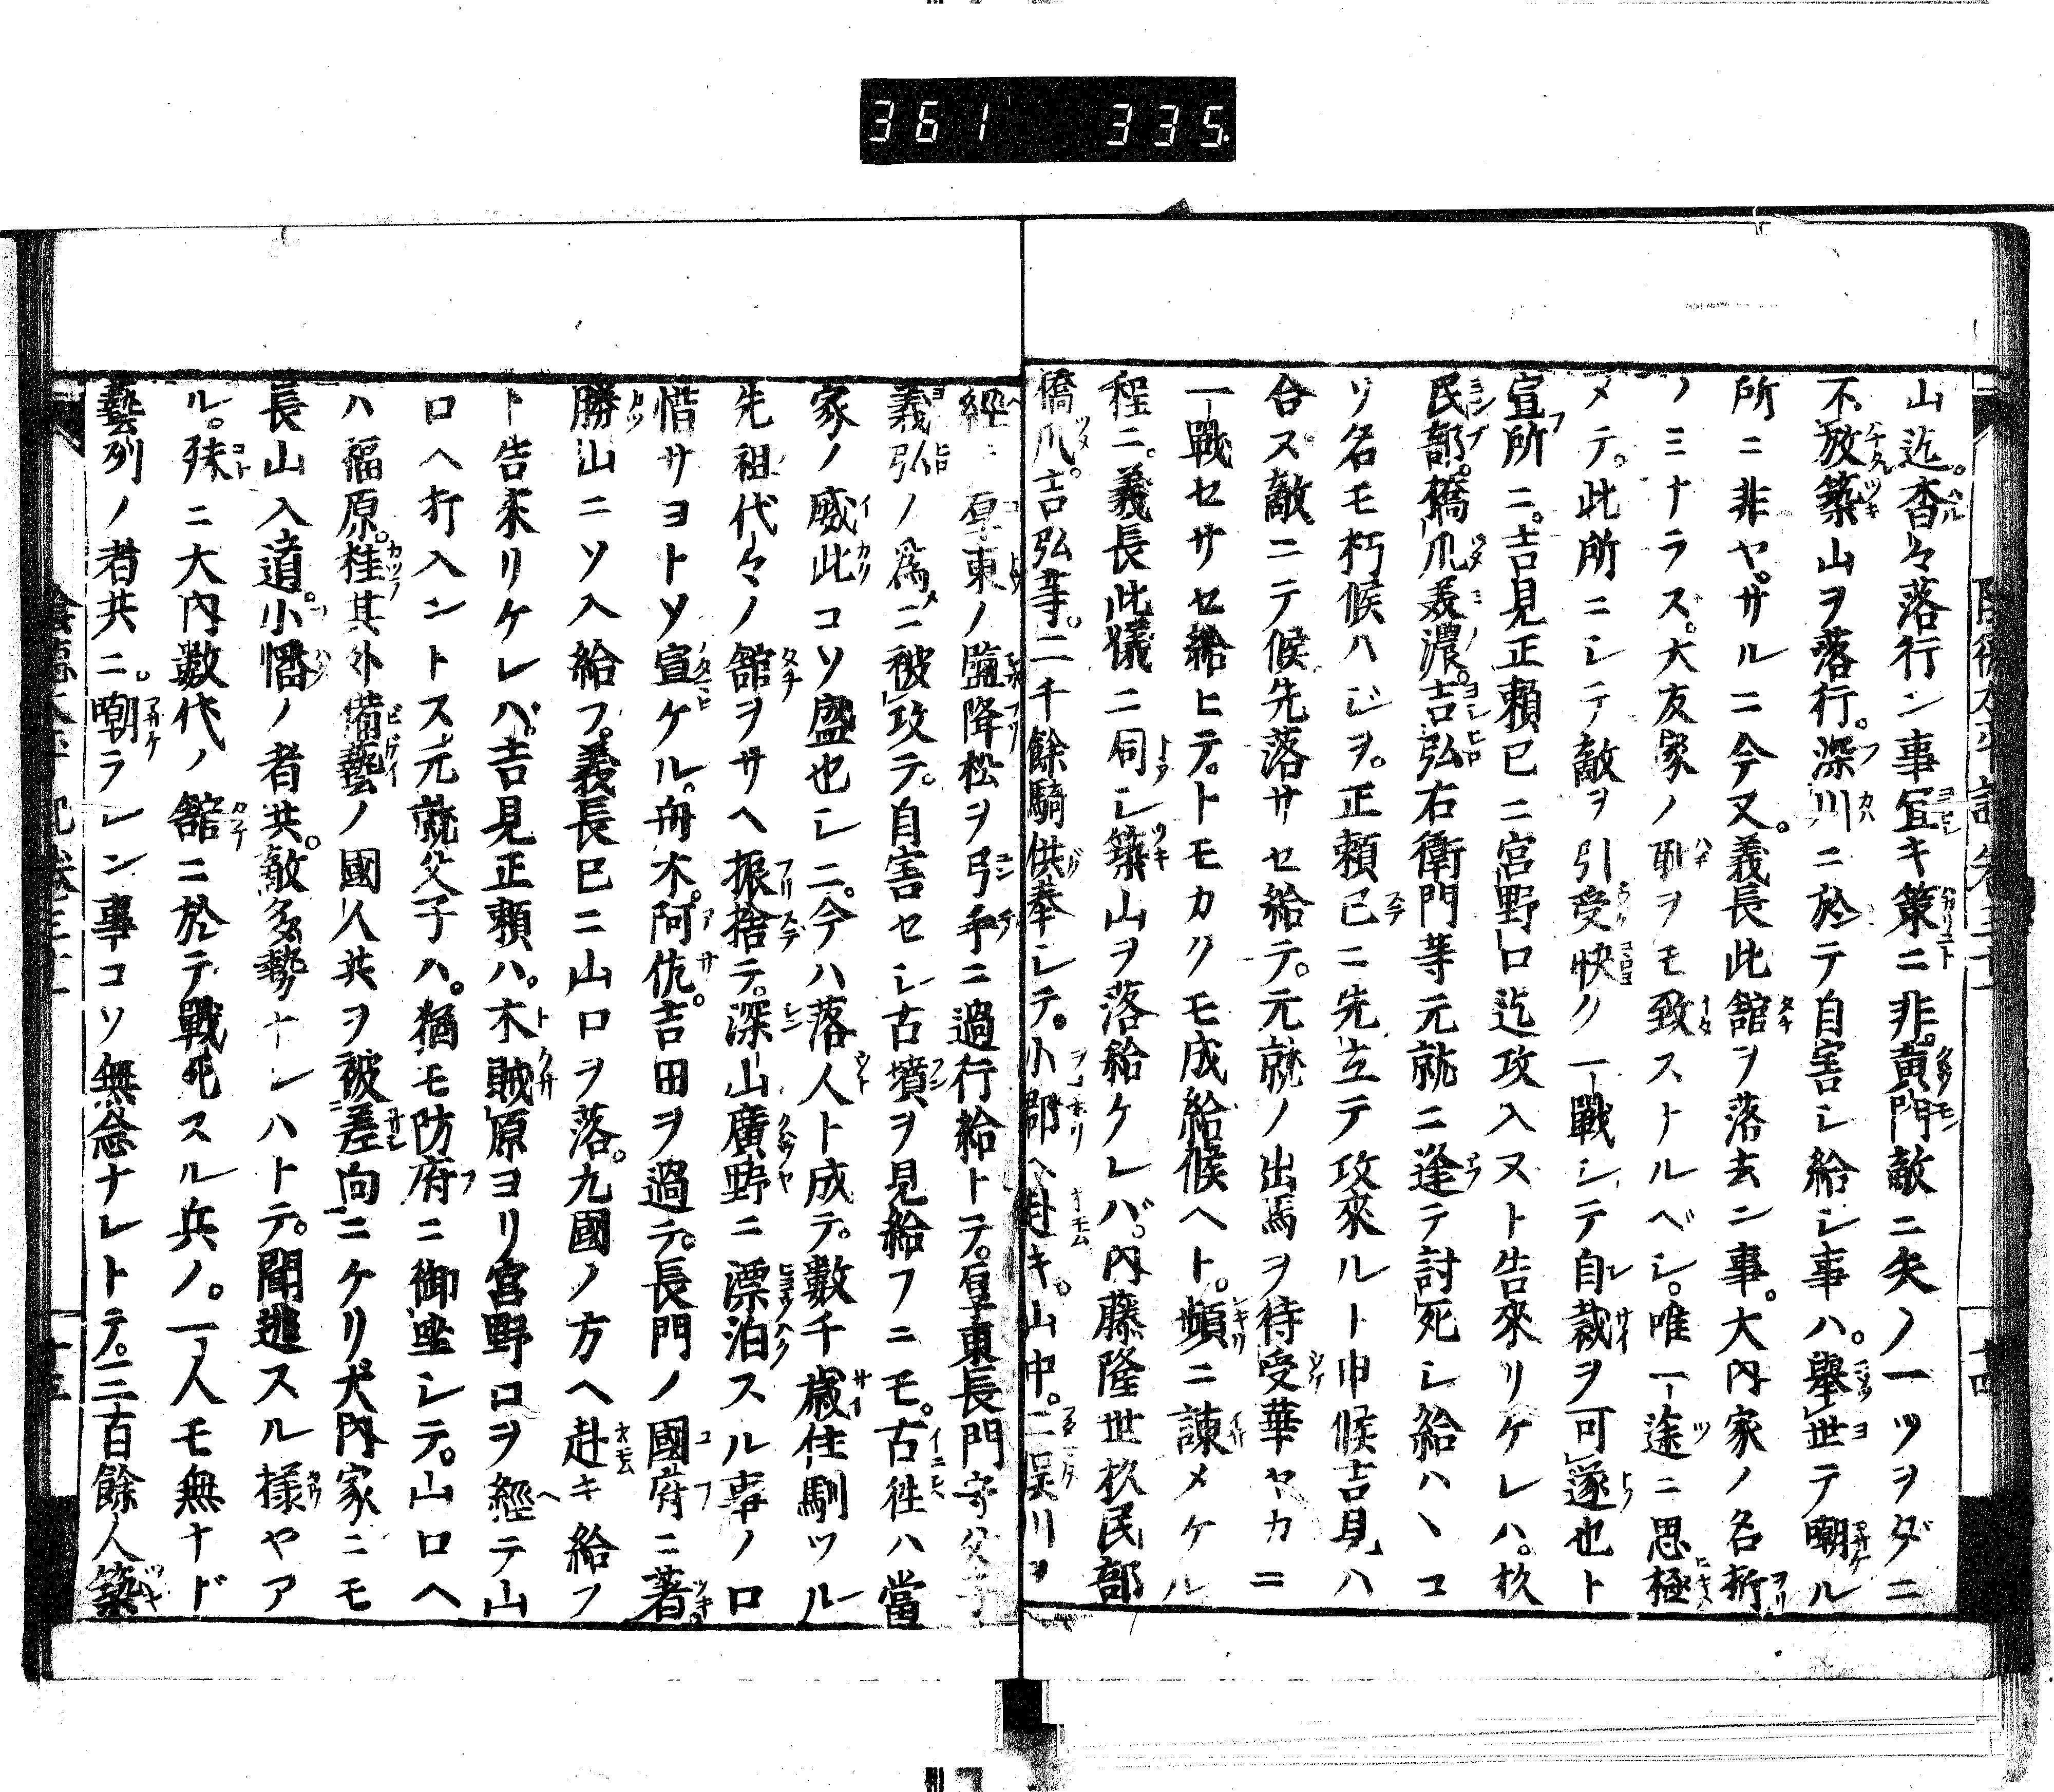 361 335
山迄。杳々落行ン事宜キ策ニ非。黄門敵ニ矢ノ一ツヲダニ
不放築山ヲ落行。深川ニ於テ自害シ給シ事ハ。舉世テ嘲ル
所ニ非ヤ。サルニ今又。義長此舘ヲ落去ン事。大内家ノ名折
ノミナラズ。大友家ノ耻ヲモ致ストルベシ。唯一途ニ思極
メテ。此所ニシテ敵ヲ引受快ク一戰シテ自裁ヲ可遂也ト
宣所ニ。吉見正頼已ニ宮野口迄攻入ヌト告來リケレハ。杦
民部。橋爪美濃。吉弘右衛門等元就ニ逢テ討死シ給ハヽコ
ソ名モ朽候ハジヲ。正頼已ニ先立テ攻來ルト申候吉見ハ
合ズ敵ニテ候先落サセ給テ。元就ノ出馬ヲ待受華ヤカニ
一戰セサセ給ヒテ。トモカクモ成給候ヘト。頻ニ諫メケル
程ニ。義長此儀ニ同シ築山ヲ落給ケレバ。内藤隆世杦民部
橋爪。吉弘等。二千餘騎供奉シテ。小郡ヘ赴キ。山中。二俣川ヲ
經。厚東ノ 降松ヲ弓手ニ過行給トテ。厚東長門守父子
義弘ノ爲ニ被攻テ。自害セシ古墳ヲ見給フニモ。古徃ハ當
家ノ威此コソ盛也シニ。今ハ落人ト成テ。數千歳住馴ツル
先祖代々ノ舘ヲサヘ振捨テ。深山廣野ニ漂泊スル事ノロ
惜サヨトソ宣ケル。舟木。阿 。吉田ヲ過テ。長門ノ國府ニ著。
勝山ニソ入給フ。義長已ニ山口ヲ落。九國ノ方ヘ赴キ給フ
ト告來リケレバ。吉見正頼ハ。木賊原ヨリ宮野口ヲ經テ山
口ヘ打入ントス元就父子ハ。猶モ防府ニ御座シテ。山口ヘ
ハ福原。桂其外備藝ノ國人共ヲ被差向ニケリ。大内家ニモ
長山入道。小幡ノ者共。敵多勢ナシハトテ。聞逃スル樣ヤア
ル。殊ニ大内數代ノ舘ニ於テ戰死スル兵ノ。一人モ無ナド
藝列ノ者共ニ。嘲ラレン事コソ無念ナレトテ。三百餘人築